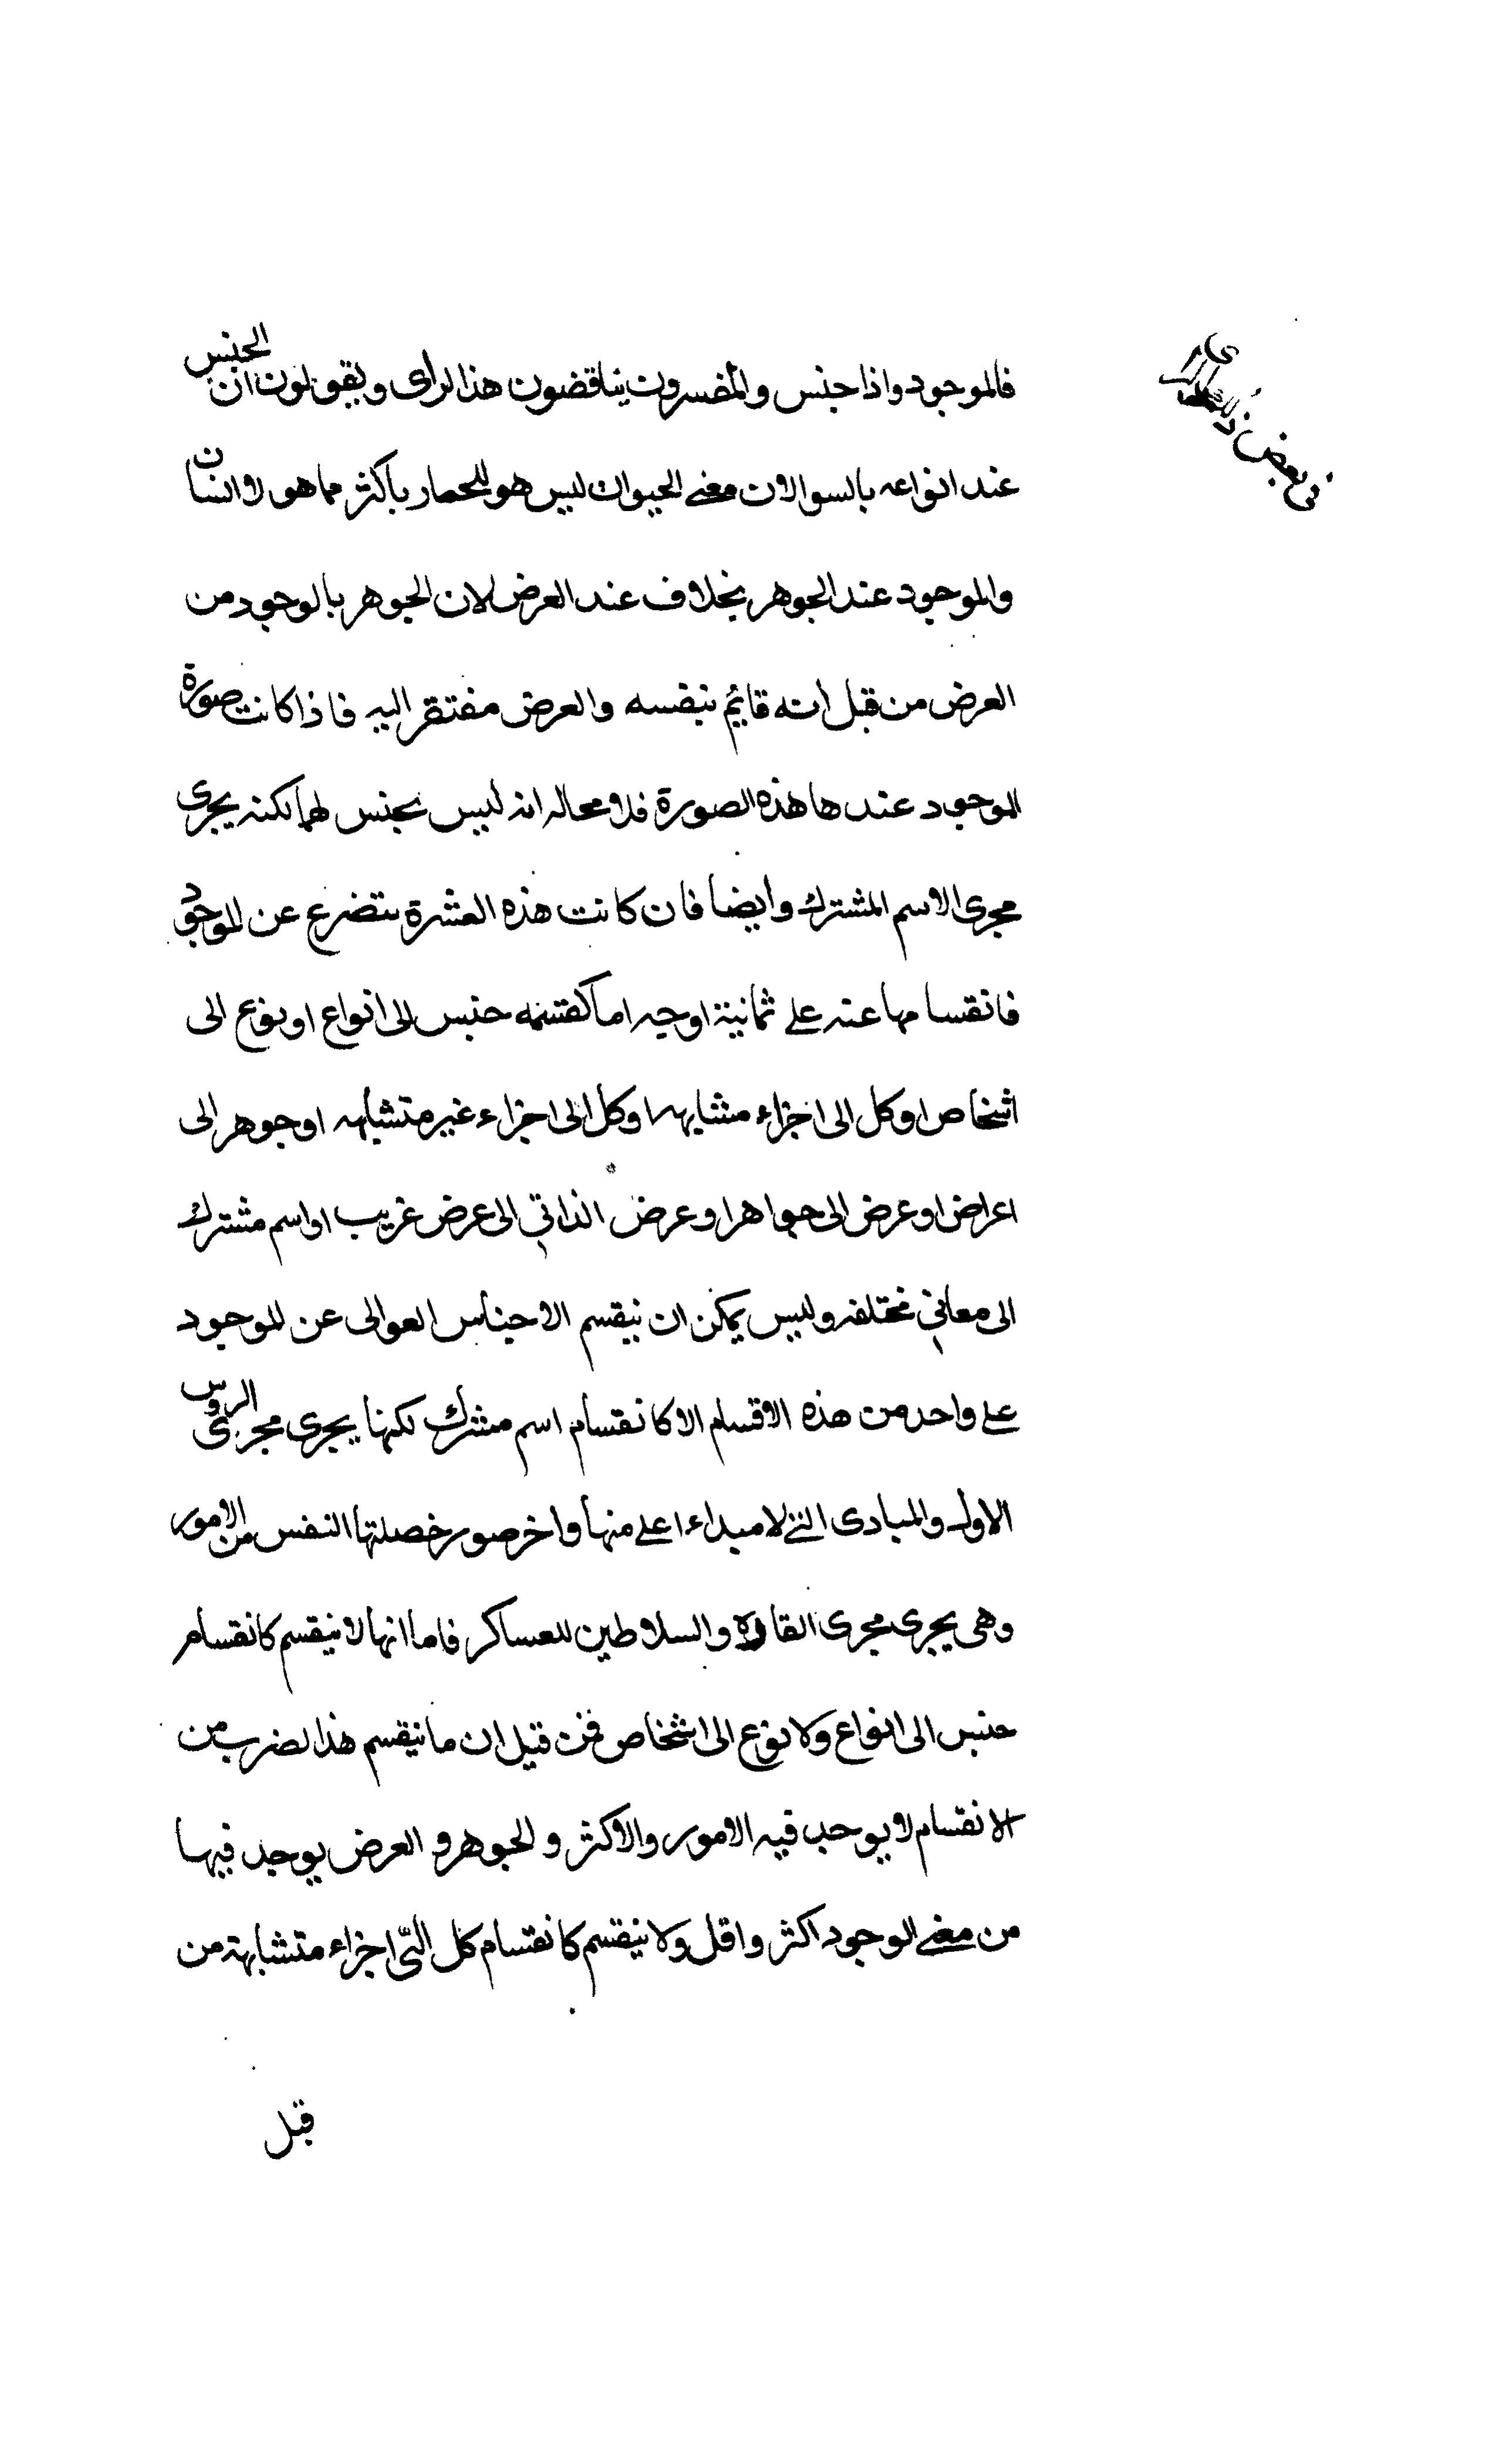 فالموجود واذا جنس والمفسرون يناقضون هذا الراى ويقولون ان الجنس
عند انواعه بالسوا لان معنى الحيوان ليس هو للحمار باكثر مما هو لانسان
والموجود عند الجوهر بخلاف عند العرض لان الجوهر بالوجود من
العرض من قبل انه قايم بنفسه والعرض مفتقر اليه فاذا كانت صورة
الموجود عندها هذه الصورة فلا محاله انه ليس بجنس لهما لكنه يجرى
مجرى الاسم المشترك وايضا فان كانت هذه العشرة يتضرع عن الموجود
فانقسامها عنه على ثمانية اوجه اما كقسمه جنس الى انواع او نوع الى
اشخاص او كل الى اجزاء متشابهه او كل الى اجزاء غير متشابهه او جوهر الى
اعراض او عرض الى جواهر او عرض الذاتي الى عرض غريب او اسم مشترك
الى معاني مختلفه وليس يمكن ان ينقسم الاجناس العوالى عن الموجود
على واحد من هذه الاقسام الا كانقسام اسم مشترك لكنها يجرى مجرى الروس
الاول والمبادى التى لا مبداء اعلى منها واخر صور خصلتها النفس من الامور
وهى يجرى مجرى القادة والسلاطين للعساكر فاما انها لا ينقسم كانقسام
جنس الى انواع ولا نوع الى اشخاص فمن قبل ان ما ينقسم هذا لضرب من
الانقسام لا يوجب فيه الامور والاكثر والجوهر والعرض يوجد فيها
من معنى الوجود اكثر واقل ولا ينقسم كانقسام كل الى اجزاء متشابهة من
قبل
فى بعض